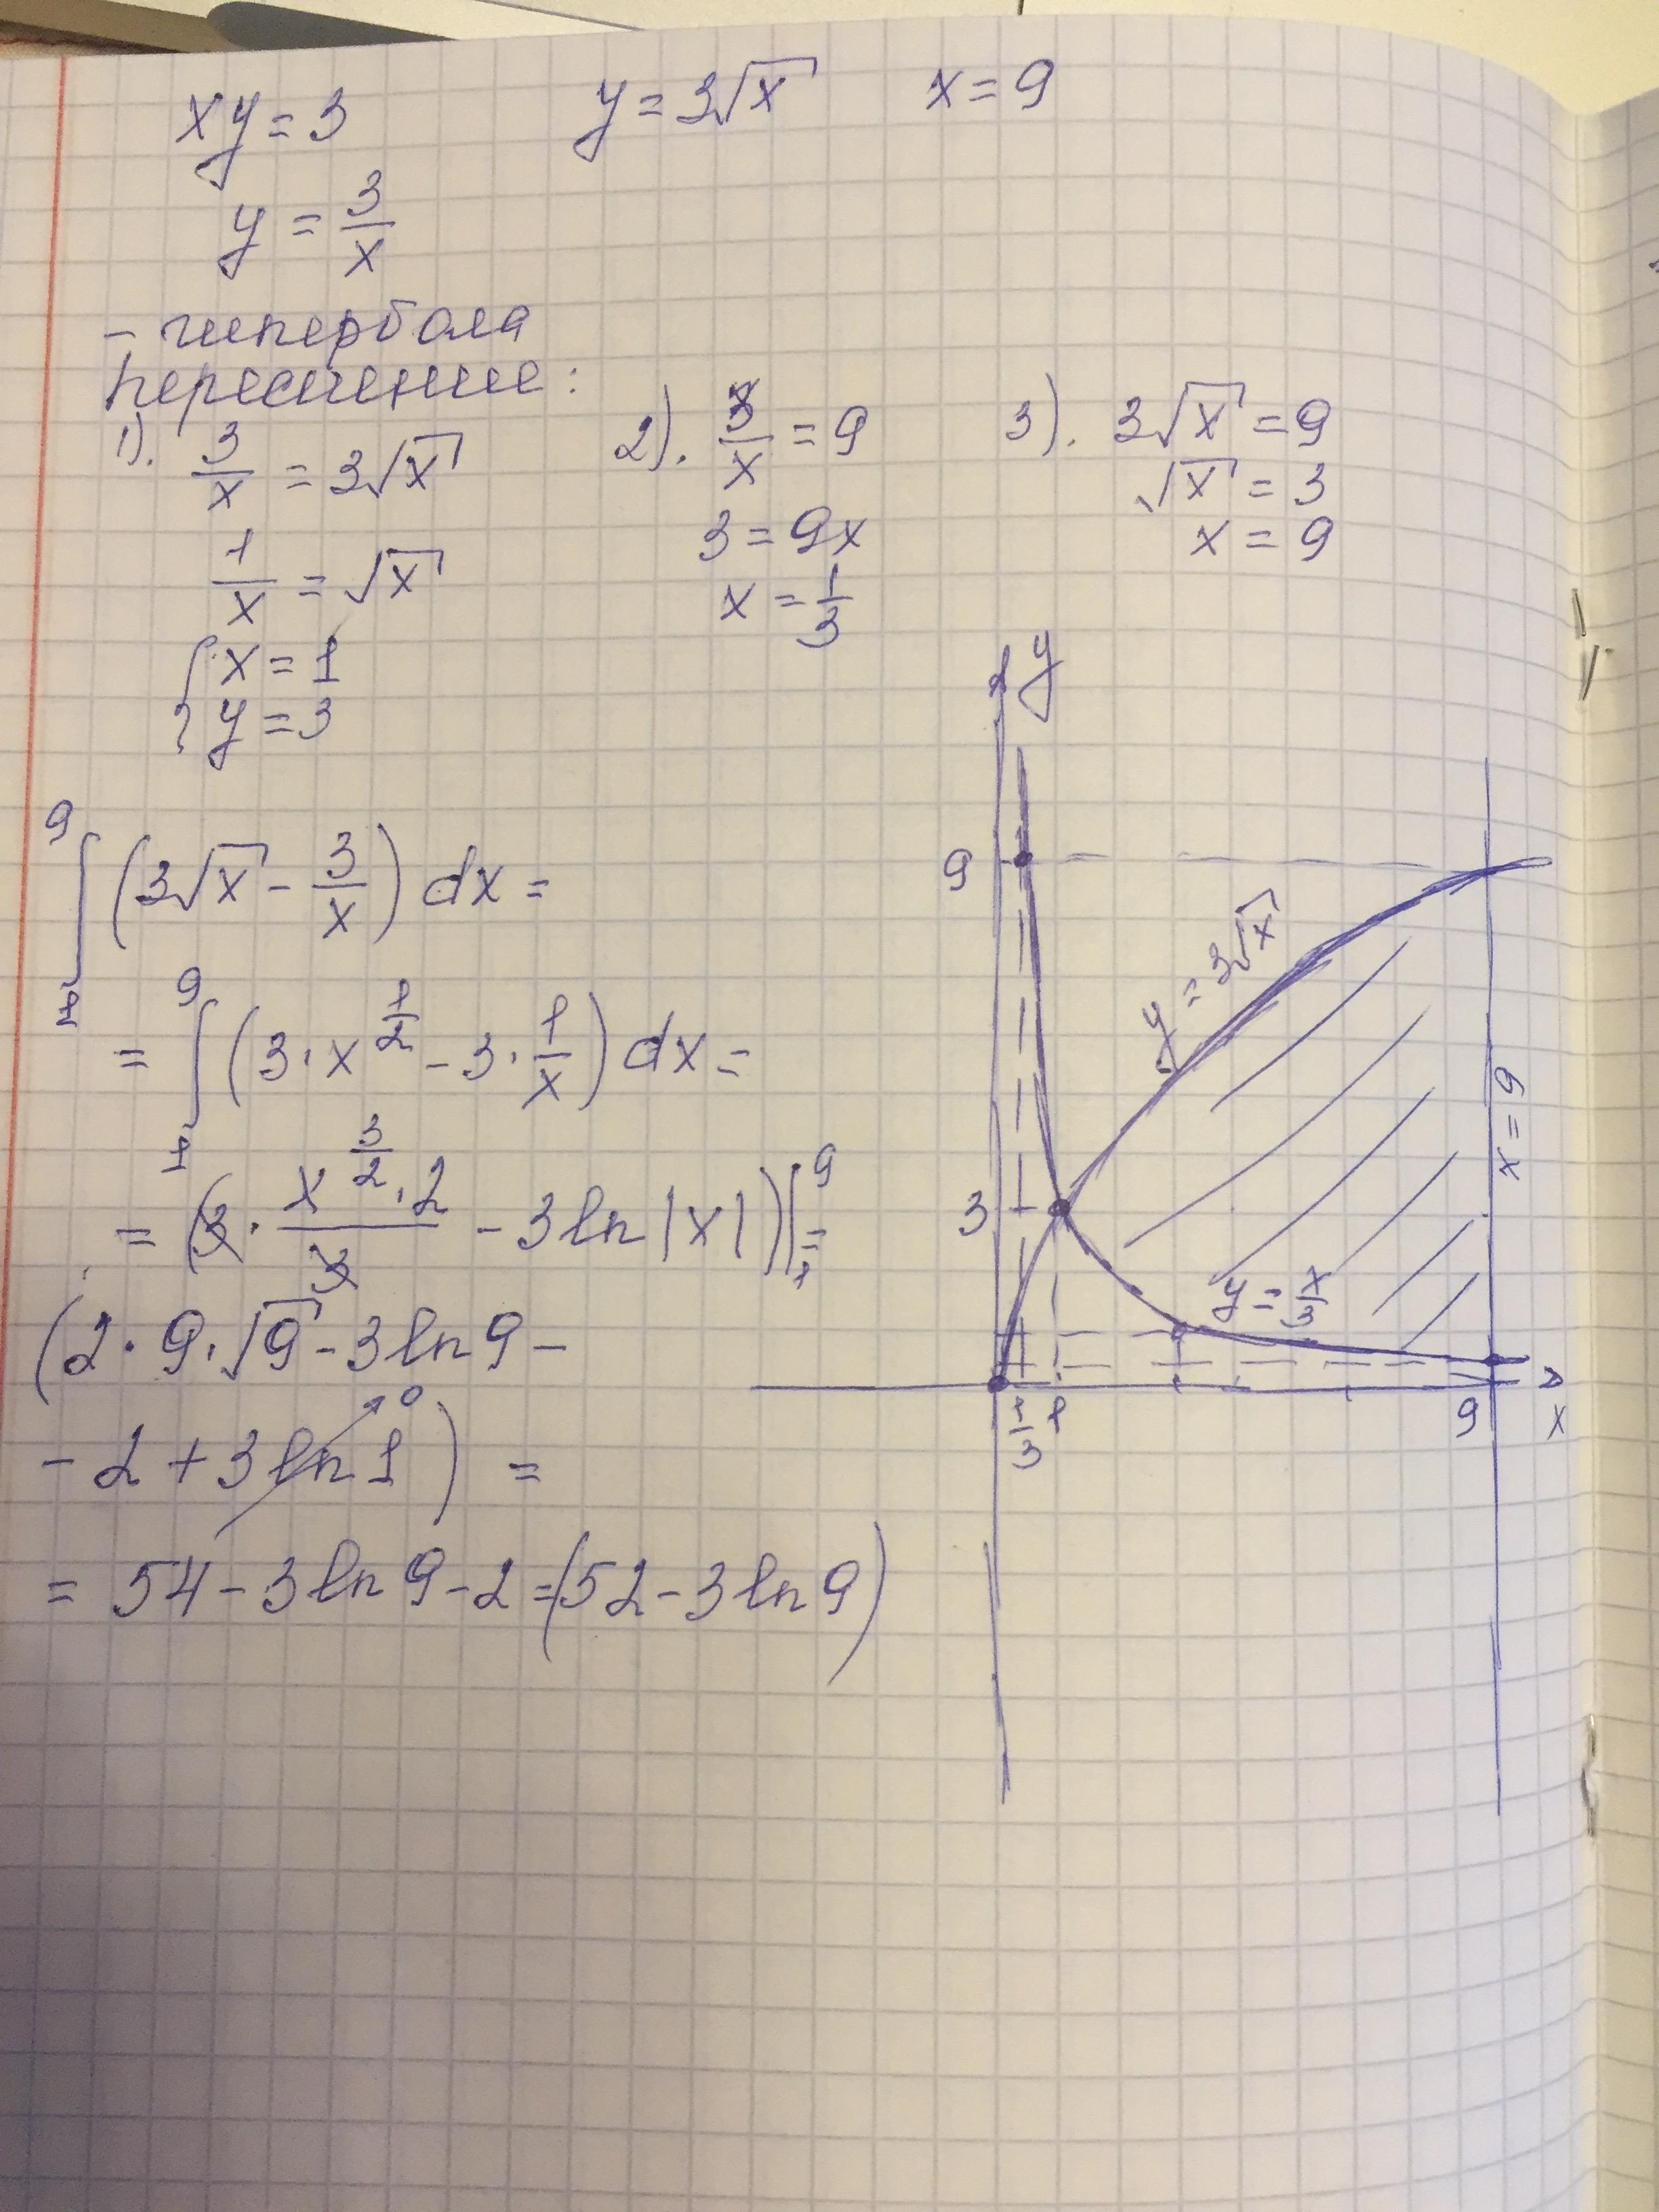 xy = 3 y = 3√x x = 9
y = 3/x
- гипербола
пересечение:
1). 3/x = 3√x 2). 3/x = 9 3). 3√x = 9
1/x = √x 3 = 9x √x = 3
{x = 1 x = 1/3 x = 9
{y = 3
∫₁⁹ (3√x - 3/x) dx =
= ∫₁⁹ (3·x^(1/2) - 3·1/x) dx =
= (3· x^(3/2)·2/3 - 3 ln|x|)|₁⁹ =
(2·9·√9 - 3 ln 9 -
- 2 + 3 ln 1) = 0
= 54 - 3 ln 9 - 2 = (52 - 3 ln 9)
y
9
y = 3√x
x = 9
3
y = x/3
1/3 1 9 x